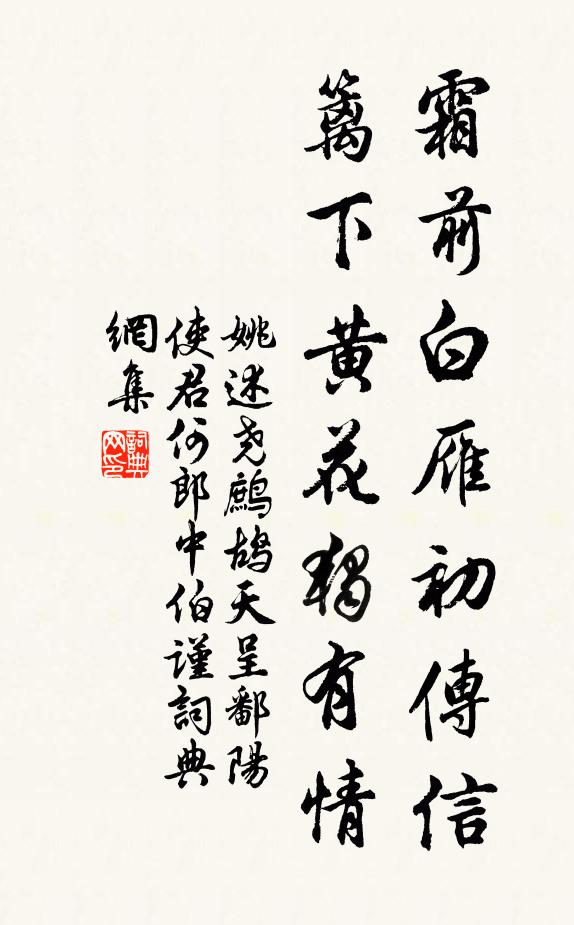 霜前白雁初傳信
籬下黃花獨有情
姚述堯鷓鴣天呈鄱陽
使君何郎中伯謹詞典
網集
詞典
网印